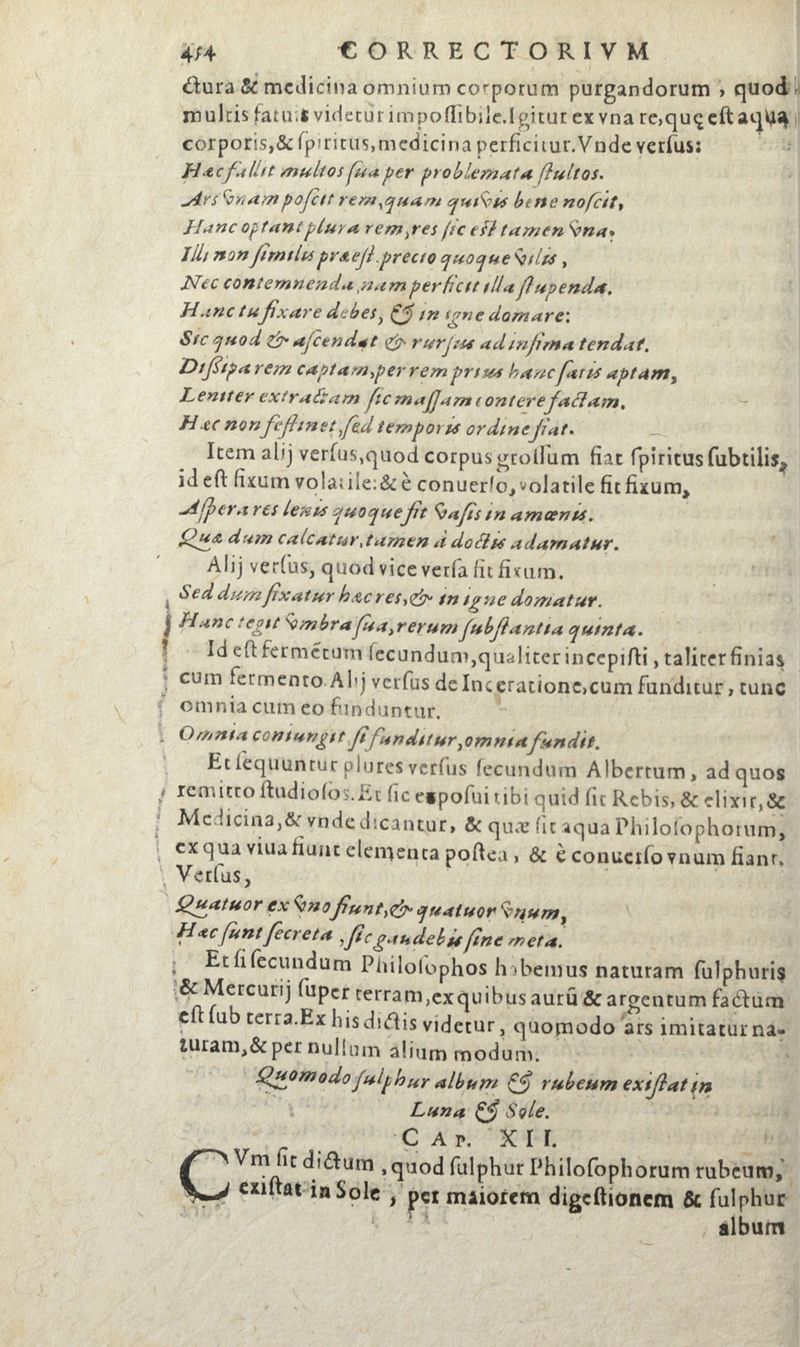 4ſ4 CORRECTORIVM
ctura & medicina omnium corporum purgandorum, quod
multis fatuis videtur impoſſibile. Igitur ex vna re, quę eſt aqua
corporis, & ſpiritus, medicina perficitur. Vnde verſus:
Hæc fallit multos ſua per problemata ſtultos.
Ars vnam poſcit rem, quam quivis bene noſcit,
Hanc optant plura rem, res ſic eſt tamen vna,
Illi non ſimilis præeſt precio quoque vilis,
Nec contemnenda, nam perficit illa ſtupenda.
Hanc tu fixare debes, & in igne domare:
Sic quod & aſcendat & rurſus ad infima tendat.
Diſſipa rem captam, per rem prius hanc ſatis aptam,
Leniter extractam ſic maſſam conterefactam.
Hæc non feſtinet, ſed temporis ordine fiat.
Item alij verſus, quod corpus groſſum fiat ſpiritus ſubtilis,
id eſt fixum volatile: & è conuerſo, volatile fit fixum,
Aſpera res lenis quoque fit vaſis in amœnis.
Qua dum calcatur, tamen à doctis adamatur.
Alij verſus, quod vice verſa fit fixum.
Sed dum fixatur hæc res, & in igne domatur.
Hanc tegit vmbra ſua, rerum ſubſtantia quinta.
Id eſt fermẽtum ſecundum, qualiter incepiſti, taliter finias
cum fermento. Alij verſus de Inceratione, cum funditur, tunc
omnia cum eo funduntur.
Omnia coniungit ſi funditur, omnia fundit.
Et ſequuntur plures verſus ſecundum Albertum, ad quos
remitto ſtudioſos. Et ſic expoſui tibi quid ſit Rebis, & elixir, &
Medicina, & vnde dicantur, & quæ ſit aqua Philoſophorum,
ex qua viua fiunt elementa poſtea, & è conuerſo vnum fiant.
Verſus,
Quatuor ex vno fiunt, & quatuor vnum,
Hæc ſunt ſecreta, ſic gaudebis ſine meta.
Et ſi ſecundum Philoſophos habemus naturam ſulphuris
& Mercurij ſuper terram, ex quibus aurũ & argentum factum
eſt ſub terra. Ex his dictis videtur, quomodo ars imitatur na-
turam, & per nullum alium modum.
Quomodo ſulphur album & rubeum exiſtat in
Luna & Sole.
CAP. XII.
CVm ſit dictum, quod ſulphur Philoſophorum rubeum,
exiſtat in Sole, per maiorem digeſtionem & ſulphur
album